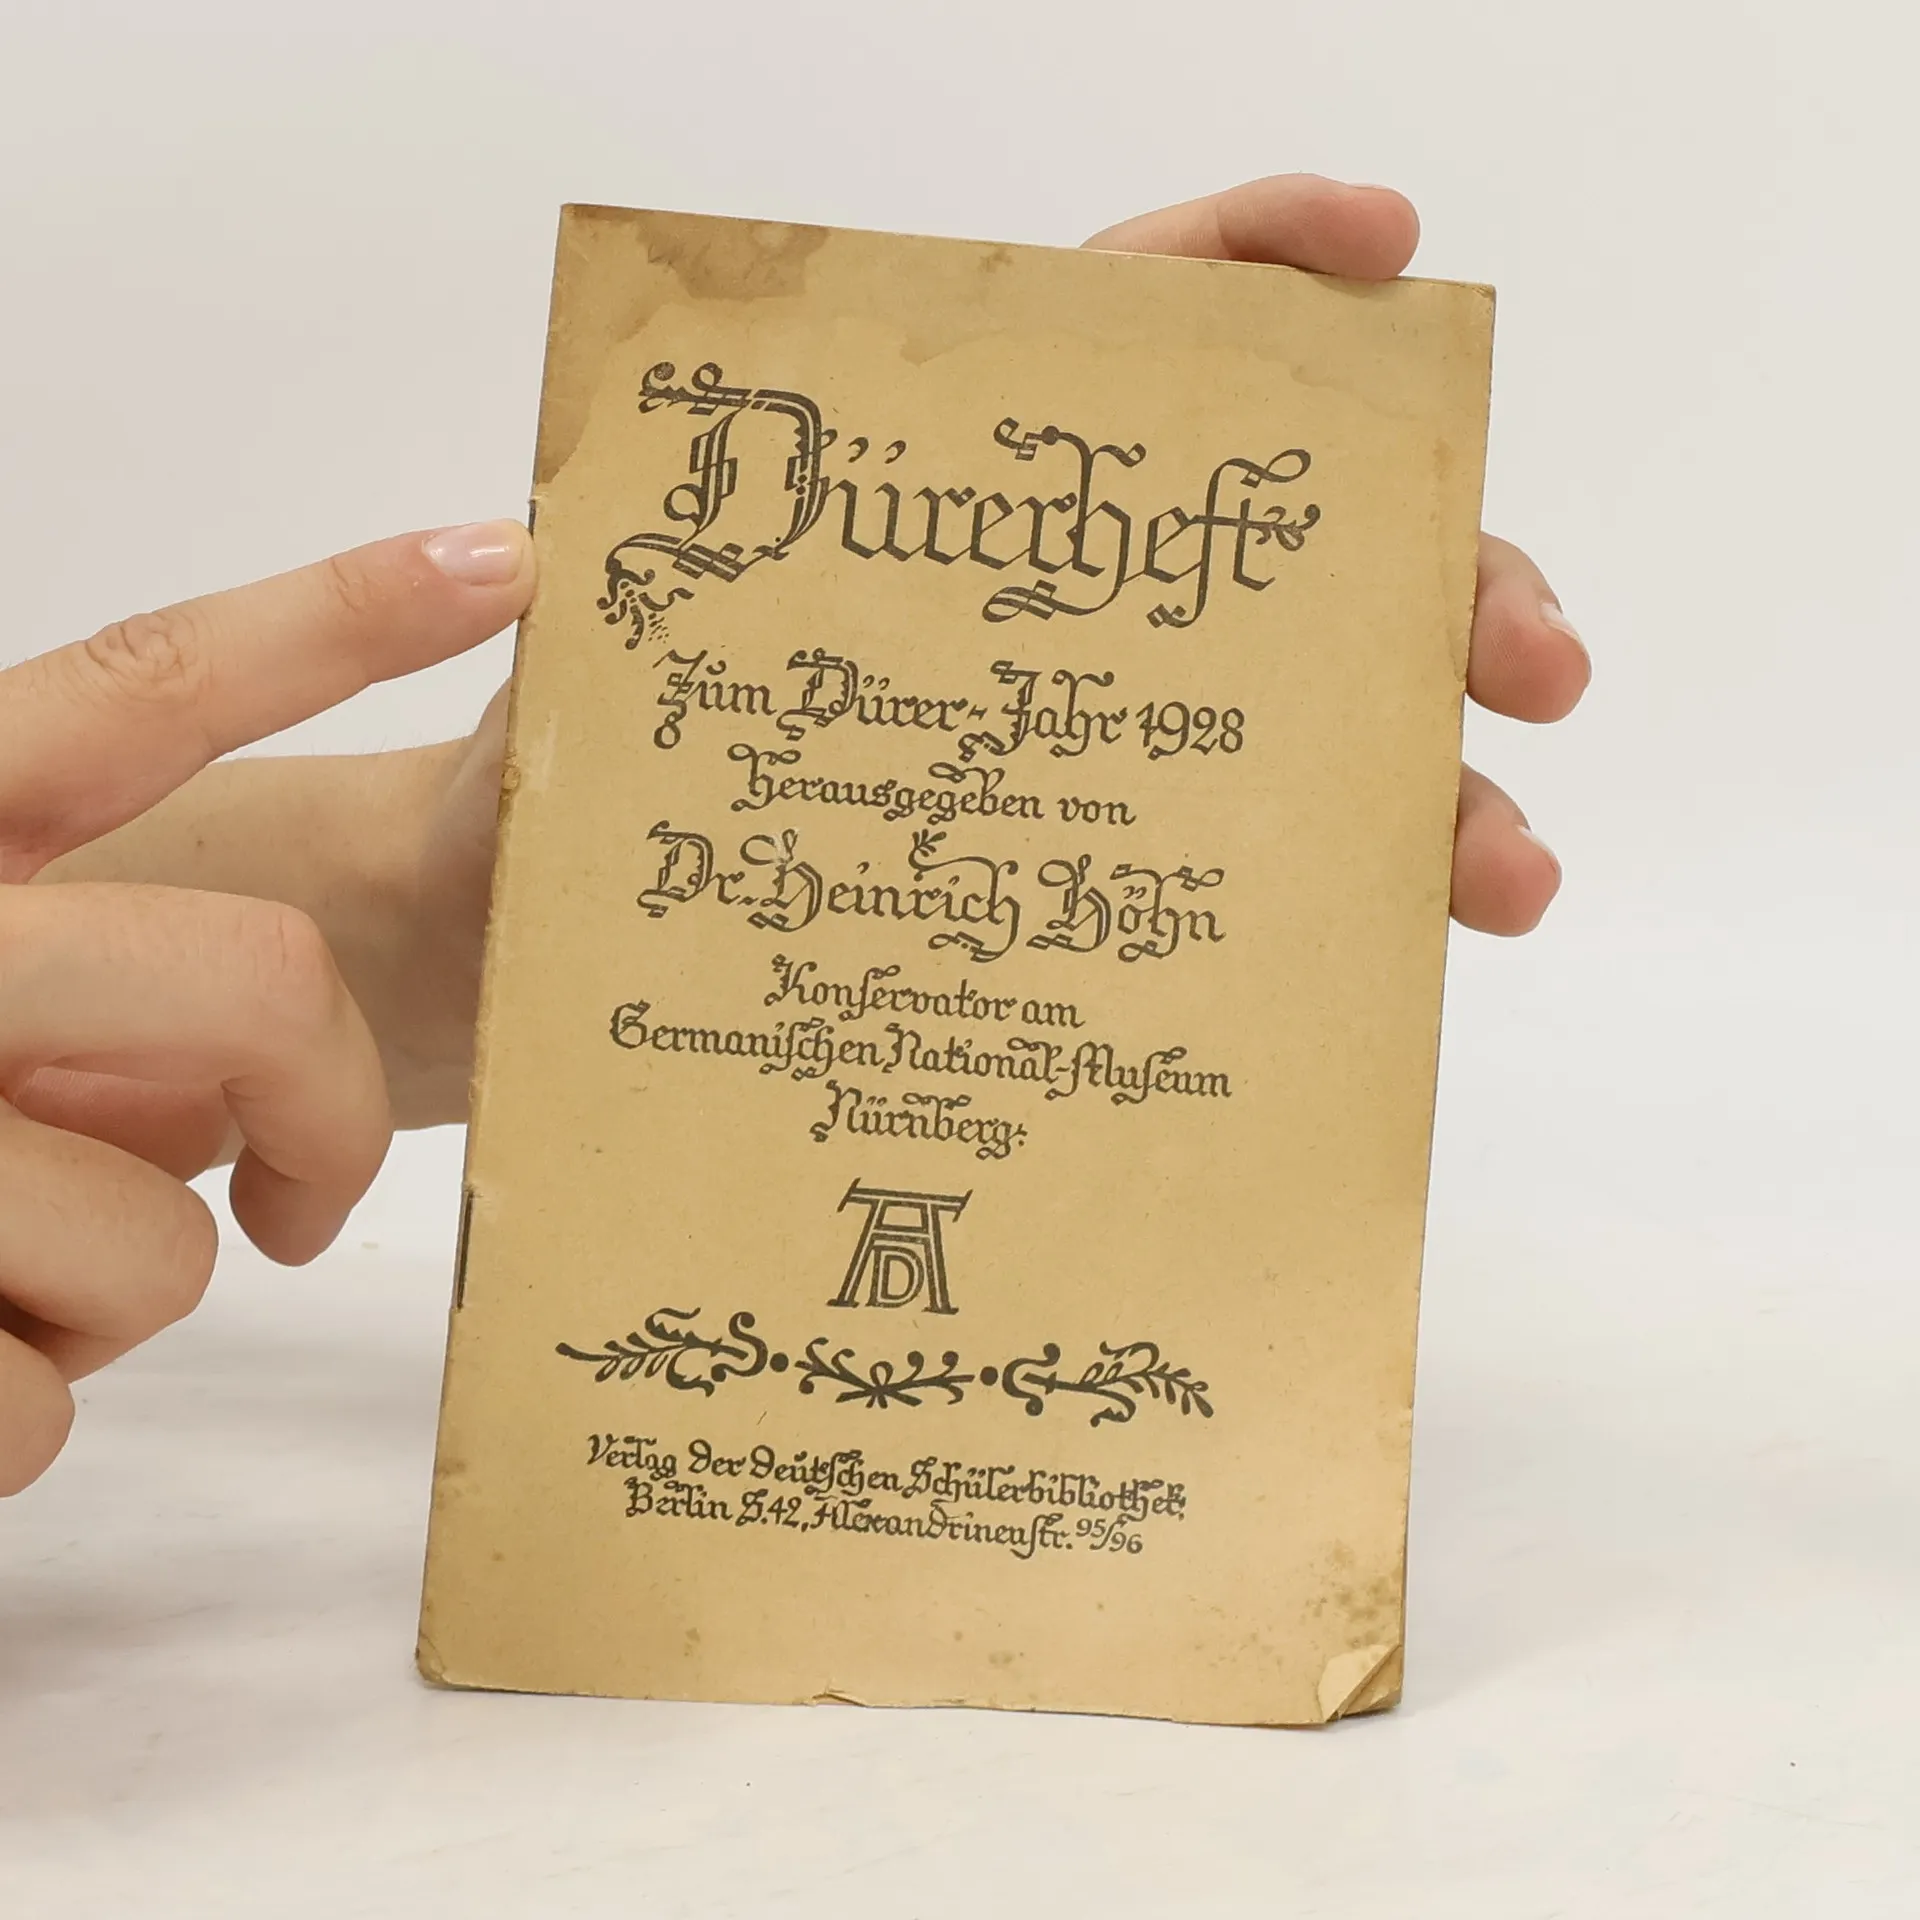 Dürerheft
Zum Dürer-Jahr 1928
Herausgegeben von
Dr. Heinrich Höhn
Konservator am
Germanischen National-Museum
Nürnberg.
AD
Verlag der Deutschen Schülerbibliothek.
Berlin S.42, Alexandrinenstr. 95/96